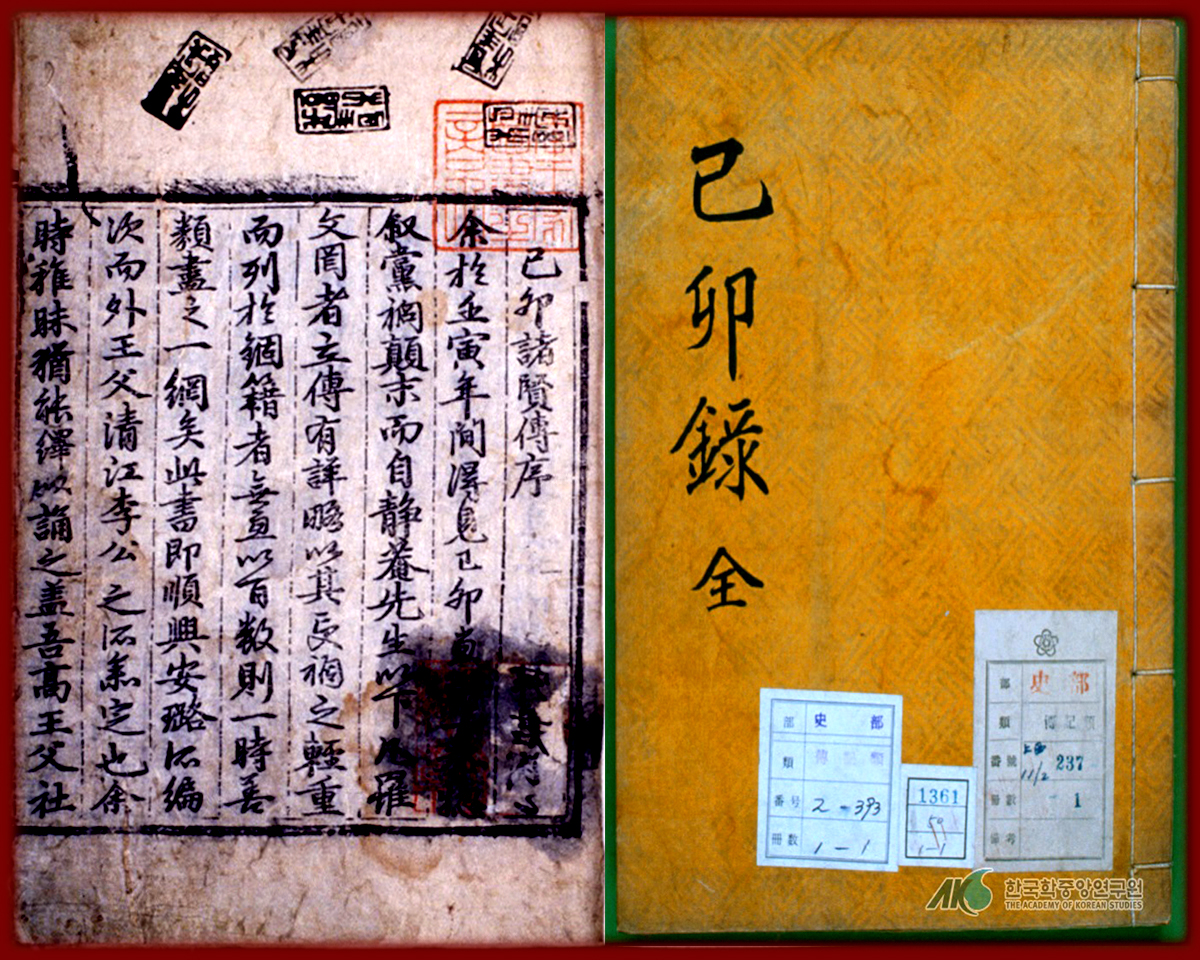 己卯諸賢傳序
余於丙寅年間得見己卯
叙黨禍顛末而自静菴先生以下 罹
文罔者立傳有詳略以其受禍之輕重
而列於錮籍者無慮以百数則一時善
類盡之一網矣此書即順興安璐所編
次而外王父清江李公之所裒定也余
時稚昧猶能繹以誦之盖吾高王父社
己卯錄 全
部 史部
類 傳記類
番号 2-393
冊数 1-1
1361
50
1-1
部 史部
類 傳記類
番號 237
冊數 1
備考
AKS 한국학중앙연구원
THE ACADEMY OF KOREAN STUDIES